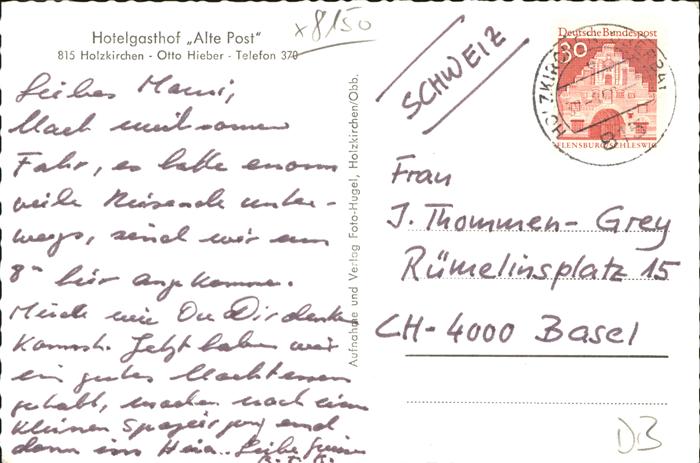 Hotelgasthof „Alte Post“
815 Holzkirchen - Otto Hieber - Telefon 370
x8150
Liebes Mami,
Nach mühsamer
Fahr, es hatte enorm
viele Reisende unter-
wegs, sind wir um
8- hier angekommen.
Müde wie Du Dir denken
kannst. Jetzt haben wir
ein gutes Nachtessen
gehabt, machen noch ein
kleinen Spaziergang und
dann ins Heia.. Liebe Grüsse
Aufnahme und Verlag Foto-Hugel, Holzkirchen/Obb.
SCHWEIZ
Deutsche Bundespost
30
FLENSBURG/SCHLESWIG
Frau
J. Thommen-Grey
Rümelinsplatz 15
CH-4000 Basel
DB